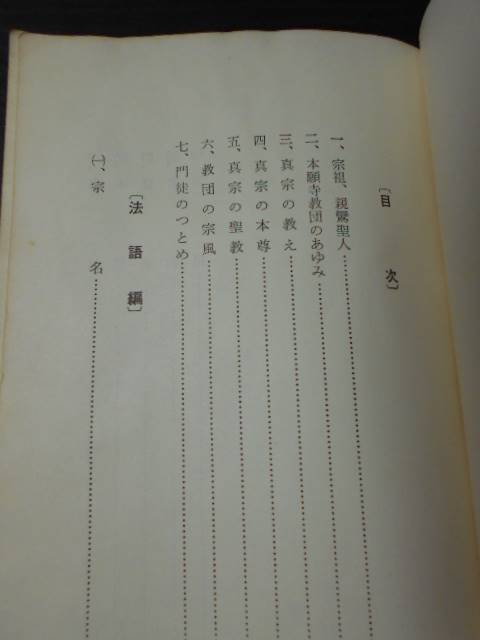 〔目次〕
一、宗祖、親鸞聖人
二、本願寺教団のあゆみ
三、真宗の教え
四、真宗の本尊
五、真宗の聖教
六、教団の宗風
七、門徒のつとめ
〔法語編〕
㈠、宗名